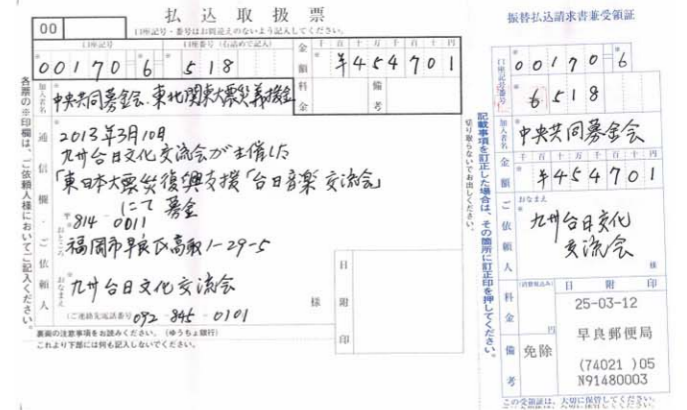 払込取扱票
00
口座記号・番号はお間違えのないよう記入してください。
口座記号 口座番号(右詰めで記入)
00170 6 518
金額 千百十万千百十円
¥454701
加入者名 中央共同募金会 東北関東大震災義援金
料金 備考
通信欄・ご依頼人
2013年3月10日
九州台日文化交流会が主催した
「東日本大震災復興支援「台日音楽」交流会」
にて募金
〒814-0011
おところ
福岡市早良区高取1-29-5
おなまえ
九州台日文化交流会
様
(ご連絡先電話番号) 092-845-0101
日附印
裏面の注意事項をお読みください。(ゆうちょ銀行)
これより下部には何も記入しないでください。
各票の※印欄は、ご依頼人様においてご記入ください。
切り取らないでお出しください。
記載事項を訂正した場合は、その箇所に訂正印を押してください。
振替払込請求書兼受領証
口座記号番号
00170-6
6518
加入者名 中央共同募金会
金額 千百十万千百十円
¥454701
ご依頼人 おなまえ
九州台日文化
交流会
様
料金 (消費税込み) 円
日附印
25-03-12
早良郵便局
備考 免除
(74021)05
N91480003
この受領証は、大切に保管してください。